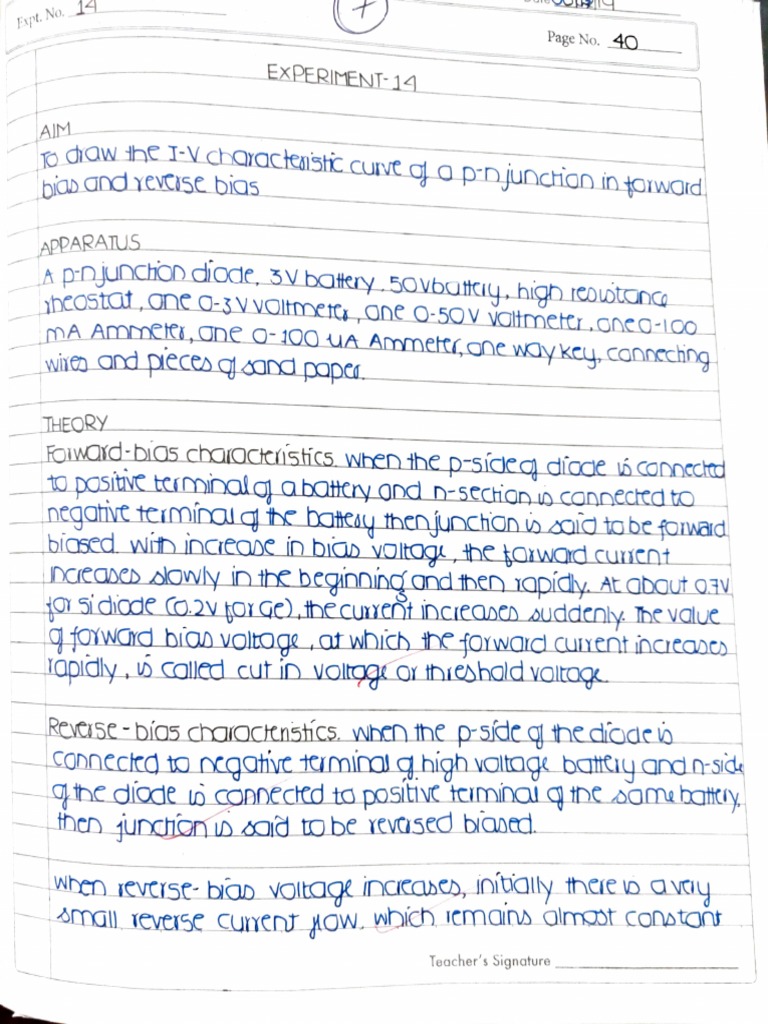 Expt. No. 14
7
Page No. 40
EXPERIMENT-14
AIM
To draw the I-V characteristic curve of a p-n junction in forward
bias and reverse bias
APPARATUS
A p-n junction diode, 3V battery, 50V battery, high resistance
rheostat, one 0-3V voltmeter, one 0-50V voltmeter, one 0-100
mA Ammeter, one 0-100 uA Ammeter, one way key, connecting
wires and pieces of sand paper.
THEORY
Forward-bias characteristics. when the p-side of diode is connected
to positive terminal of a battery and n-section is connected to
negative terminal of the battery then junction is said to be forward
biased. with increase in bias voltage, the forward current
increases slowly in the beginning and then rapidly. At about 0.7V
for si diode (0.2V for Ge), the current increases suddenly. The value
of forward bias voltage, at which the forward current increases
rapidly, is called cut in voltage or threshold voltage.
Reverse-bias characteristics. when the p-side of the diode is
connected to negative terminal of high voltage battery and n-side
of the diode is connected to positive terminal of the same battery,
then junction is said to be reversed biased.
when reverse-bias voltage increases, initially there is a very
small reverse current flow. which remains almost constant
Teacher's Signature